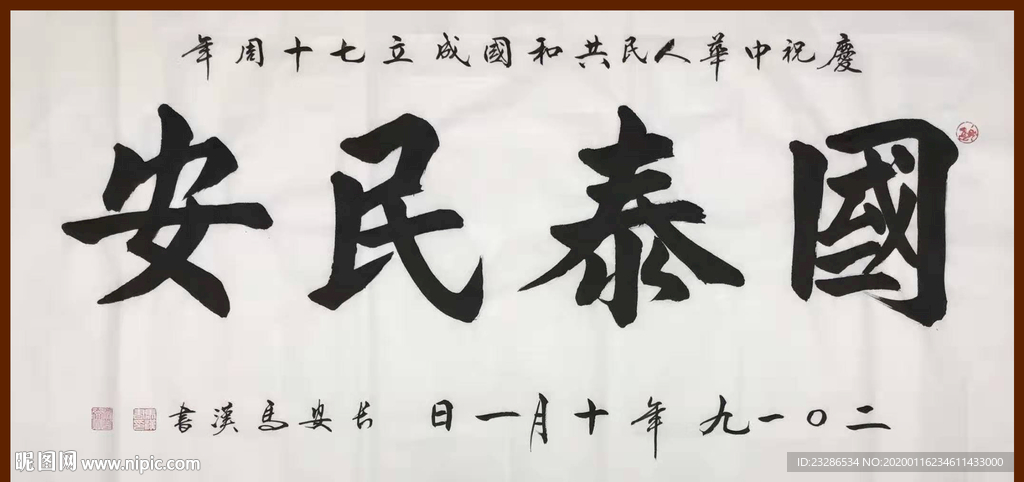 慶祝中華人民共和國成立七十周年
國泰民安
二〇一九年十月一日 长安馬漢書
昵图网 www.nipic.com
ID:23286534 NO:20200116234611433000